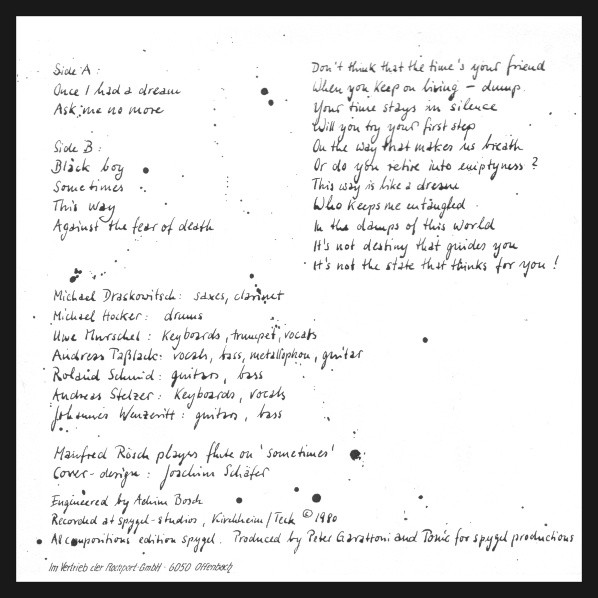 Side A :
Once I had a dream
Ask me no more
Side B :
Black boy
Sometimes
This Way
Against the fear of death
Don't think that the time's your friend
When you keep on living – dump
Your time stays in silence
Will you try your first step
On the way that makes us breath
Or do you retire into emptyness ?
This way is like a dream
Who keeps me entangled
In the damps of this world
It's not destiny that guides you
It's not the state that thinks for you !
Michael Draskowitsch : saxes, clarinet
Michael Hocker : drums
Uwe Murschel : keyboards, trumpet, vocals
Andreas Taßlack : vocals, bass, metallophon, guitar
Roland Schmid : guitars, bass
Andreas Stelzer : keyboards, vocals
Johannes Wenzeritt : guitars, bass
Manfred Rösch played flute on 'sometimes'
Cover-design : Joachim Schäfer
Engineered by Achim Bosch
Recorded at spygel-studios, Kirchheim/Teck © 1980
All compositions edition spygel. Produced by Peter Garattoni and Tonic for spygel productions
Im Vertrieb der Rockport GmbH · 6050 Offenbach